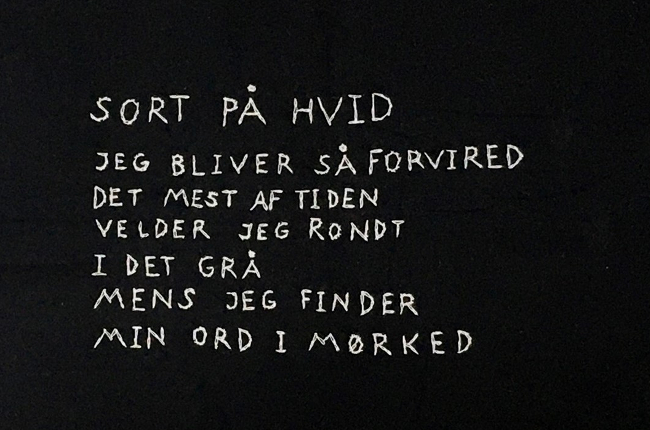 SORT PÅ HVID
JEG BLIVER SÅ FORVIRED
DET MEST AF TIDEN
VELDER JEG RONDT
I DET GRÅ
MENS JEG FINDER
MIN ORD I MØRKED